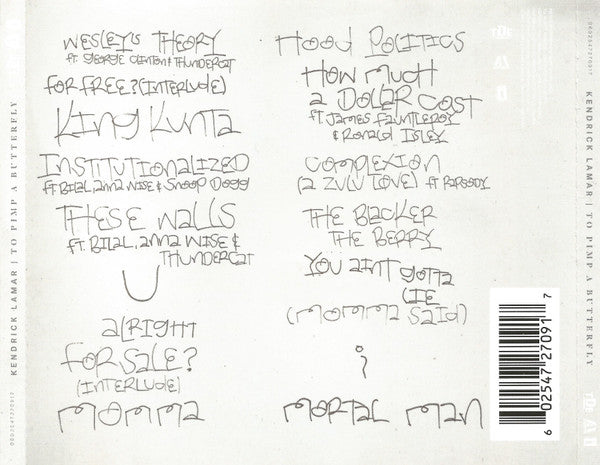 WESLEY'S THEORY
ft. GEORGE CLINTON & THUNDERCAT
FOR FREE? (INTERLUDE)
KING KUNTA
INSTITUTIONALIZED
ft BILAL, ANNA WISE & SNOOP DOGG
THESE WALLS
ft BILAL, ANNA WISE &
THUNDERCAT
U
ALRIGHT
FOR SALE?
(INTERLUDE)
MOMMA
HOOD POLITICS
HOW MUCH
A DOLLAR COST
ft JAMES FAUNTLEROY
& RONALD ISLEY
COMPLEXION
(A ZULU LOVE) ft RAPSODY
THE BLACKER
THE BERRY
YOU AINT GOTTA
LIE
(MOMMA SAID)
i
MORTAL MAN
6 02547 27091 7
KENDRICK LAMAR | TO PIMP A BUTTERFLY
KENDRICK LAMAR | TO PIMP A BUTTERFLY